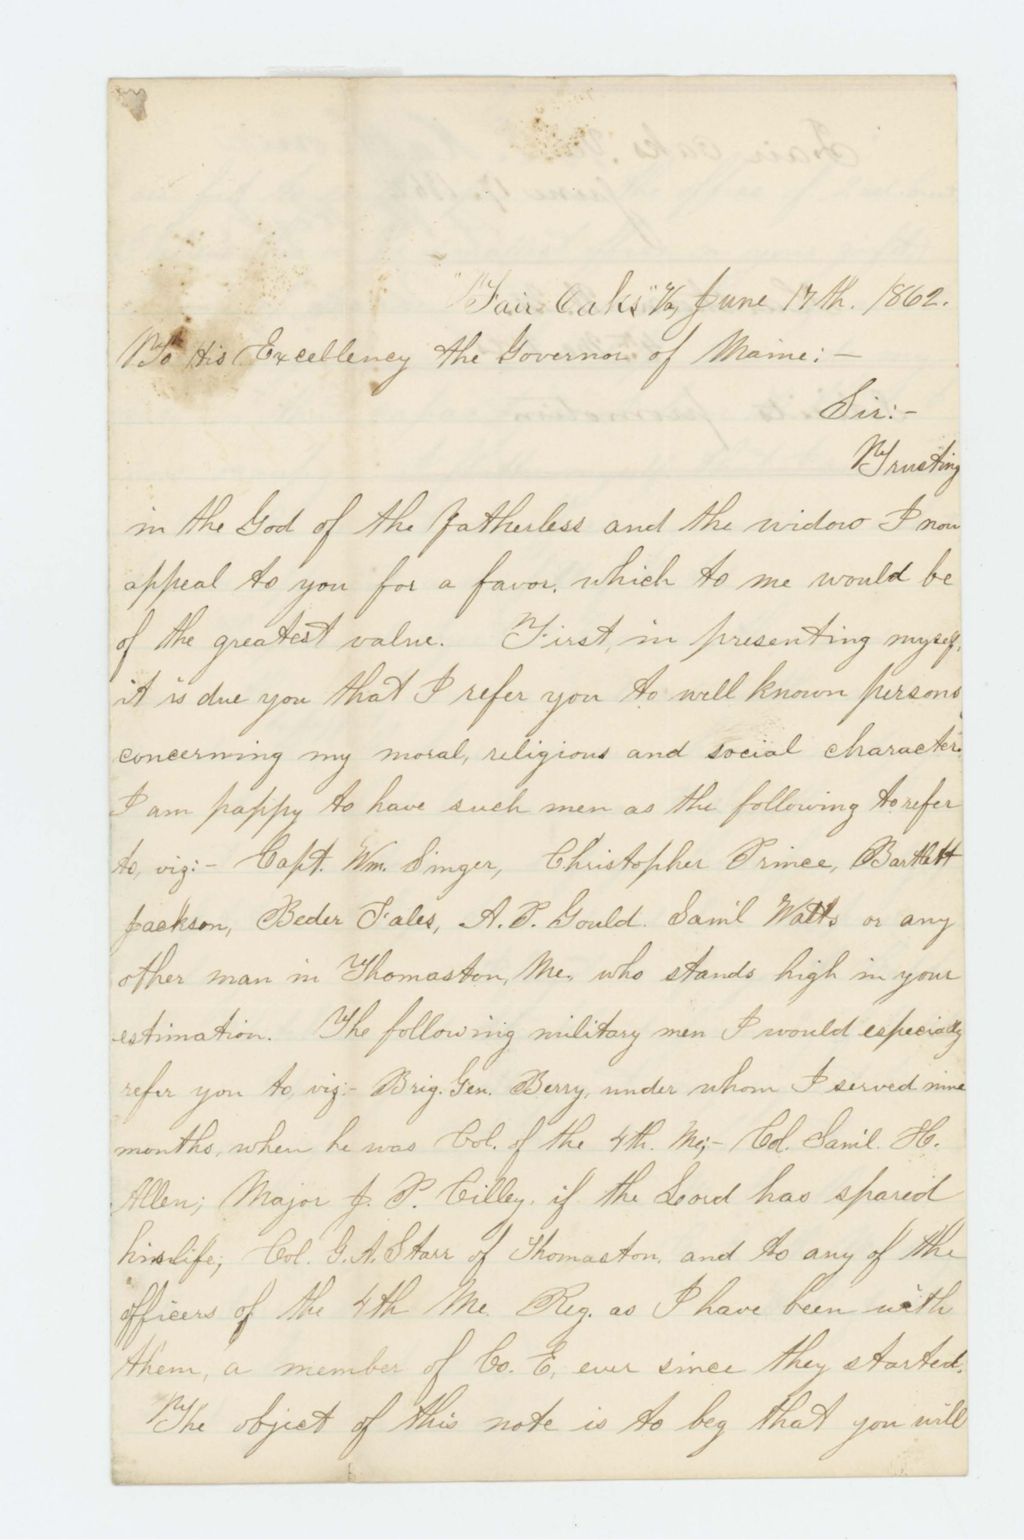 "Fair Oaks" Va, June 17th. 1862.
To His Excellency the Governor of Maine:—
Sir:—
Trusting
in the God of the fatherless and the widow I now
appeal to you for a favor, which to me would be
of the greatest value. First, in presenting myself,
it is due you that I refer you to well known persons
concerning my moral, religious and social character.
I am pappy to have such men as the following to refer
to, viz:— Capt. Wm. Singer, Christopher Prince, Bartlett
Jackson, Beder Fales, A. P. Gould. Saml Watts or any
other man in Thomaston, Me. who stands high in your
estimation. The following military men I would especially
refer you to, viz:— Brig. Gen. Berry, under whom I served nine
months, when he was Col. of the 4th. Me;— Col. Saml. H.
Allen; Major J. P. Cilley, if the Lord has spared
his life; Col. G. A. Starr of Thomaston, and to any of the
officers of the 4th Me. Reg. as I have been with
them, a member of Co. E, ever since they started.
The object of this note is to beg that you will